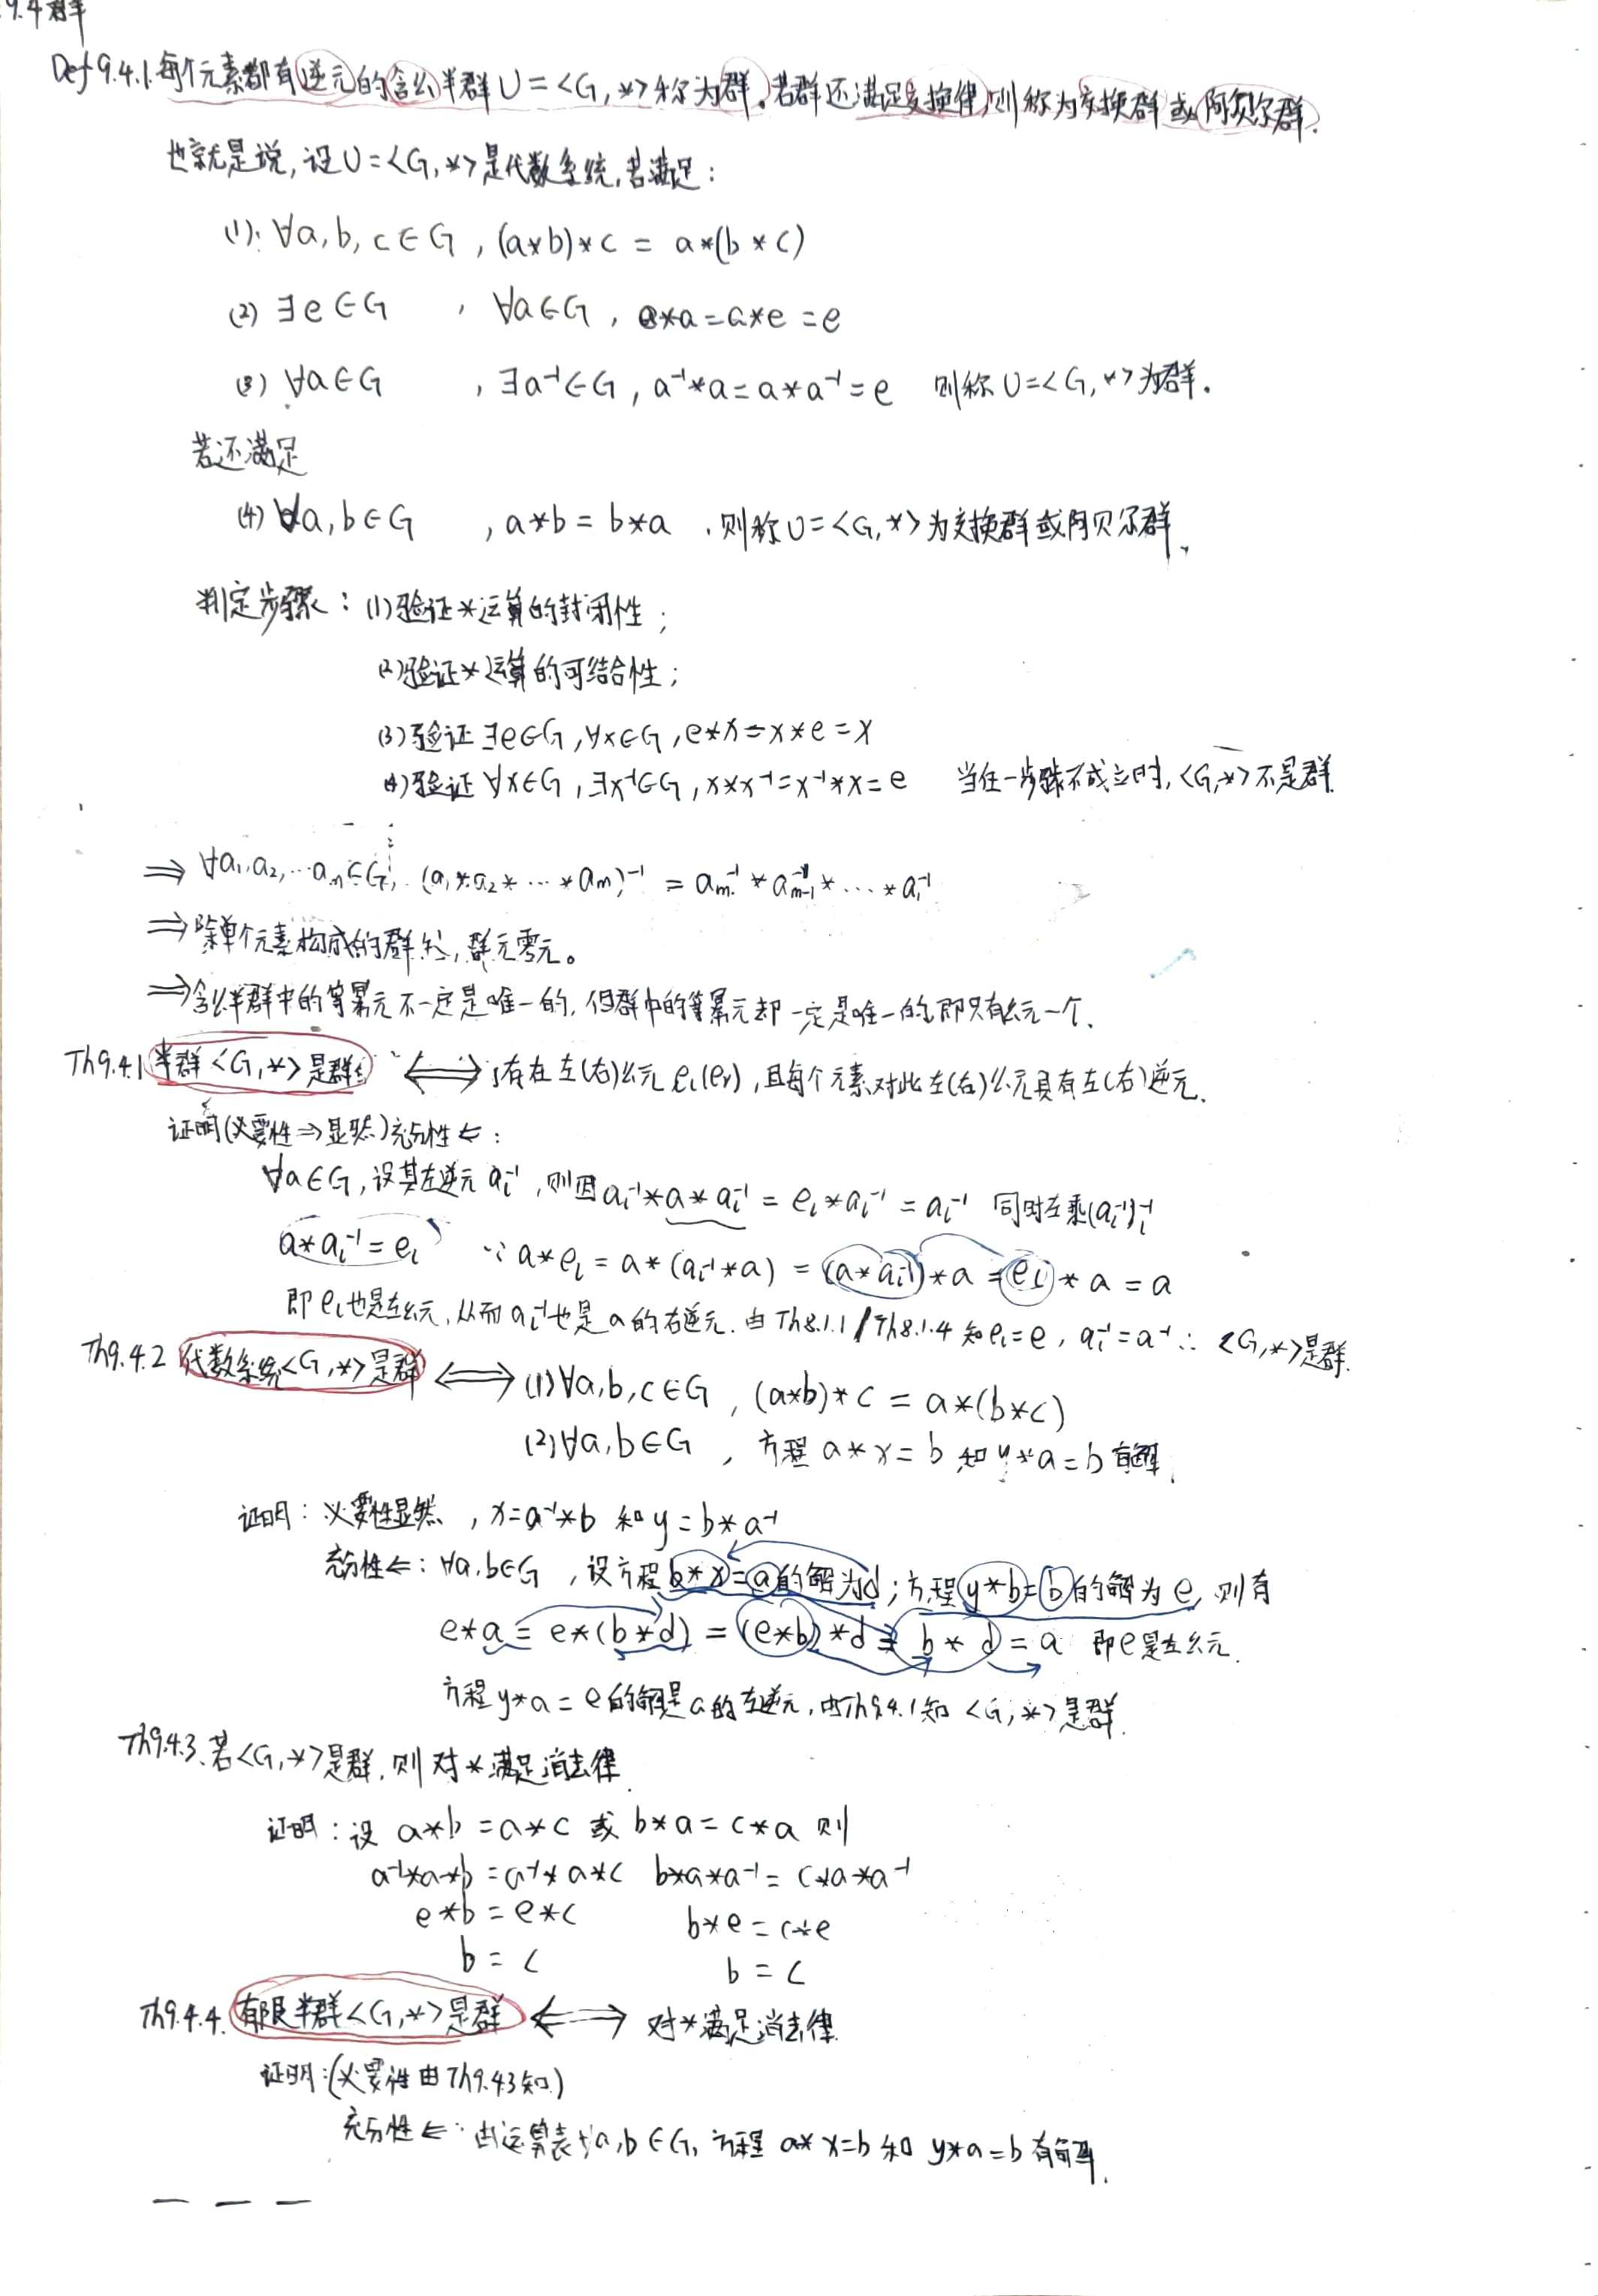 9.4群
Def 9.4.1.每个元素都有逆元的含幺半群U=<G,*>称为群。若群还满足交换律,则称为交换群或阿贝尔群.
也就是说,设U=<G,*>是代数系统,若满足:
(1): ∀a,b,c∈G,(a*b)*c = a*(b*c)
(2) ∃e∈G , ∀a∈G, e*a=a*e=e
(3) ∀a∈G , ∃a⁻¹∈G, a⁻¹*a=a*a⁻¹=e 则称U=<G,*>为群.
若还满足
(4) ∀a,b∈G , a*b=b*a .则称U=<G,*>为交换群或阿贝尔群.
判定步骤: (1)验证*运算的封闭性;
(2)验证*运算的可结合性;
(3)验证∃e∈G,∀x∈G,e*x=x*e=x
(4)验证∀x∈G,∃x⁻¹∈G,x*x⁻¹=x⁻¹*x=e 当任一步骤不成立时,<G,*>不是群.
⇒ ∀a₁,a₂,…aₘ∈G, (a₁*a₂*…*aₘ)⁻¹ = aₘ⁻¹*aₘ₋₁⁻¹*…*a₁⁻¹
⇒除单个元素构成的群外,群无零元。
⇒含幺半群中的等幂元不一定是唯一的,但群中的等幂元却一定是唯一的,即只有幺元一个.
Th9.4.1 半群<G,*>是群 ⟺ 存在左(右)幺元eₗ(eᵣ),且每个元素对此左(右)幺元具有左(右)逆元.
证明(必要性⇒显然)充分性⇐:
∀a∈G,设其左逆元aₗ⁻¹,则因aₗ⁻¹*a*aₗ⁻¹=eₗ*aₗ⁻¹=aₗ⁻¹ 同时左乘(aₗ⁻¹)ₗ⁻¹
a*aₗ⁻¹=eₗ ∵a*eₗ=a*(aₗ⁻¹*a)=(a*aₗ⁻¹)*a=eₗ*a=a
即eₗ也是左幺元,从而aₗ⁻¹也是a的右逆元.由Th8.1.1/Th8.1.4知eₗ=e,aₗ⁻¹=a⁻¹∴<G,*>是群.
Th9.4.2 代数系统<G,*>是群 ⟺ (1)∀a,b,c∈G,(a*b)*c=a*(b*c)
(2)∀a,b∈G , 方程a*x=b和y*a=b有解.
证明: 必要性显然,x=a⁻¹*b和y=b*a⁻¹
充分性⇐: ∀a,b∈G,设方程b*x=a的解为d;方程y*b=b的解为e,则有
e*a=e*(b*d)=(e*b)*d=b*d=a 即e是左幺元.
方程y*a=e的解是a的左逆元,由Th9.4.1知<G,*>是群.
Th9.4.3.若<G,*>是群,则对*满足消去律.
证明:设a*b=a*c或b*a=c*a则
a⁻¹*a*b=a⁻¹*a*c b*a*a⁻¹=c*a*a⁻¹
e*b=e*c b*e=c*e
b=c b=c
Th9.4.4.有限半群<G,*>是群 ⟺ 对*满足消去律.
证明:(必要性由Th9.4.3知)
充分性⇐:由运算表∀a,b∈G,方程a*x=b和y*a=b有解.